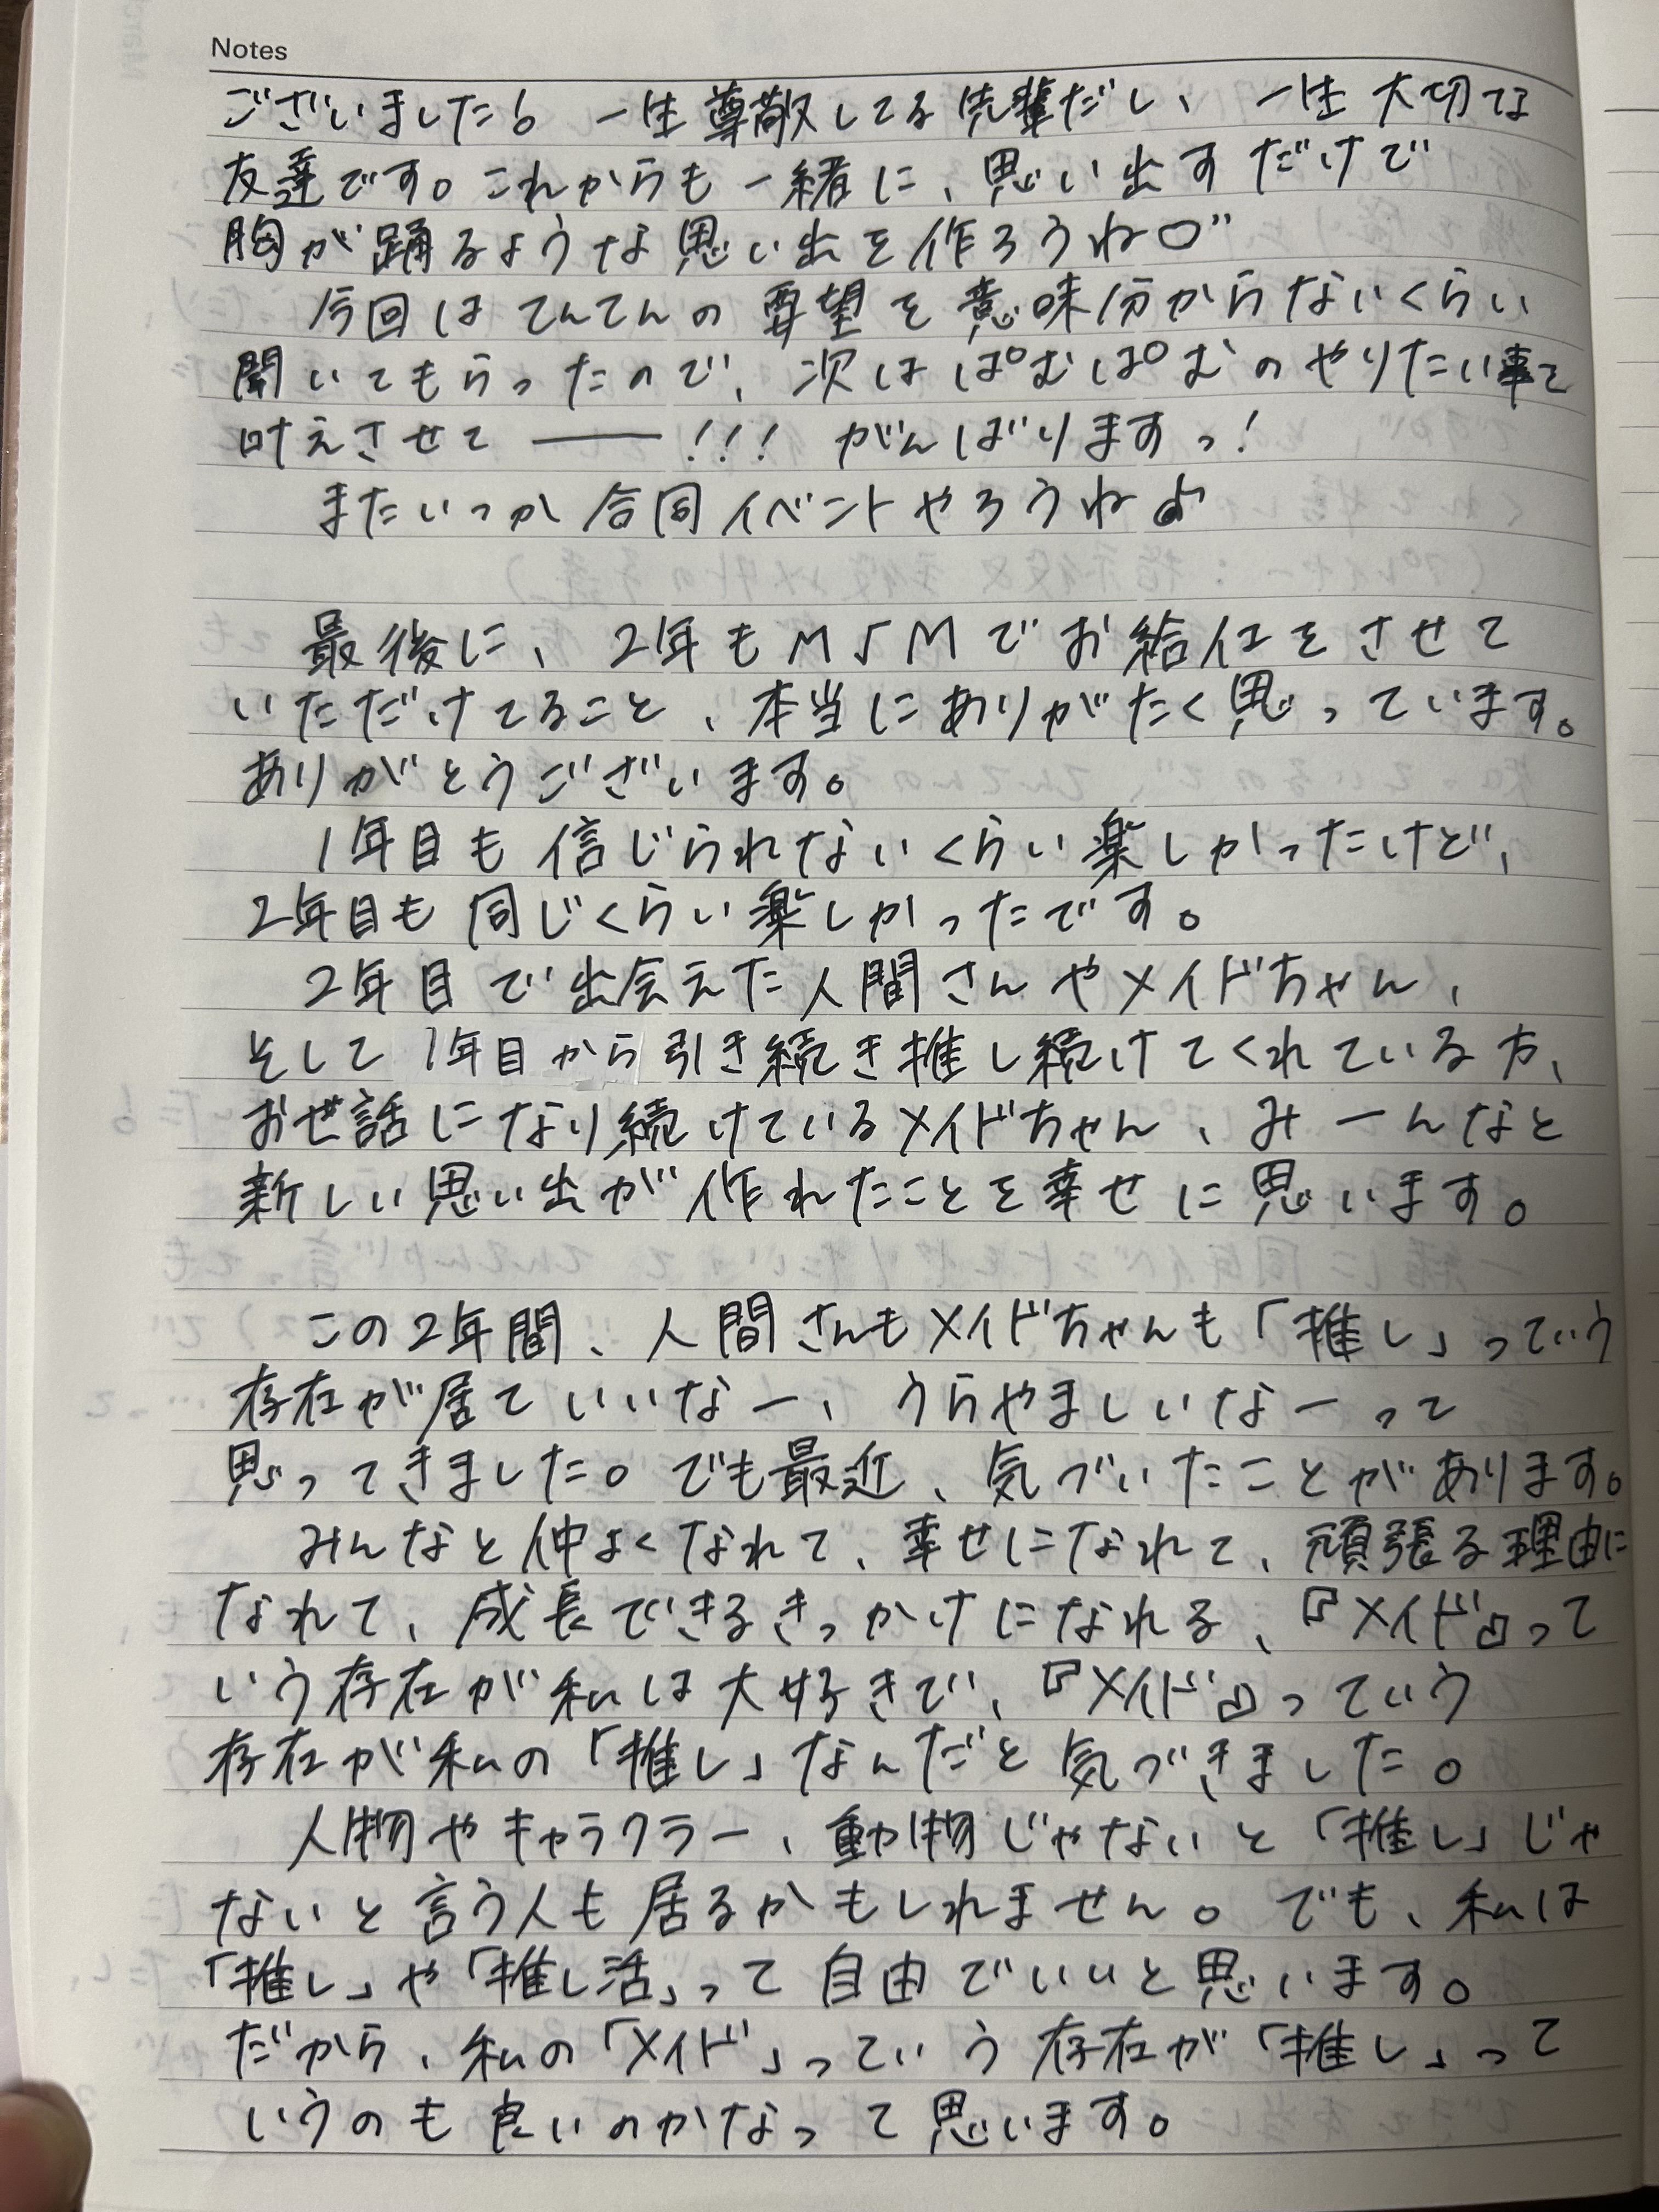 Notes
ございました!。 一生尊敬してる先輩だし、一生大切な
友達です。これからも一緒に、思い出すだけで
胸が踊るような思い出を作ろうね♡"
今回はてんてんの要望を意味分からないくらい
聞いてもらったので、次はぱむぱむのやりたい事を
叶えさせて―――!!! がんばりますっ!
またいつか合同イベントやろうね♪
最後に、2年もMSMでお給仕をさせて
いただけてること、本当にありがたく思っています。
ありがとうございます。
1年目も信じられないくらい楽しかったけど、
2年目も同じくらい楽しかったです。
2年目で出会えた人間さんやメイドちゃん、
そして1年目から引き続き推し続けてくれている方、
お世話になり続けているメイドちゃん、みーんなと
新しい思い出が作れたことを幸せに思います。
この2年間、人間さんもメイドちゃんも「推し」っていう
存在が居ていいなー、うらやましいなーって
思ってきました。でも最近、気づいたことがあります。
みんなと仲よくなれて、幸せになれて、頑張る理由に
なれて、成長できるきっかけになれる、『メイド』って
いう存在が私は大好きで、『メイド』っていう
存在が私の「推し」なんだと気づきました。
人物やキャラクラー、動物じゃないと「推し」じゃ
ないと言う人も居るかもしれません。でも、私は
「推し」や「推し活」って自由でいいと思います。
だから、私の「メイド」っていう存在が「推し」って
いうのも良いのかなって思います。